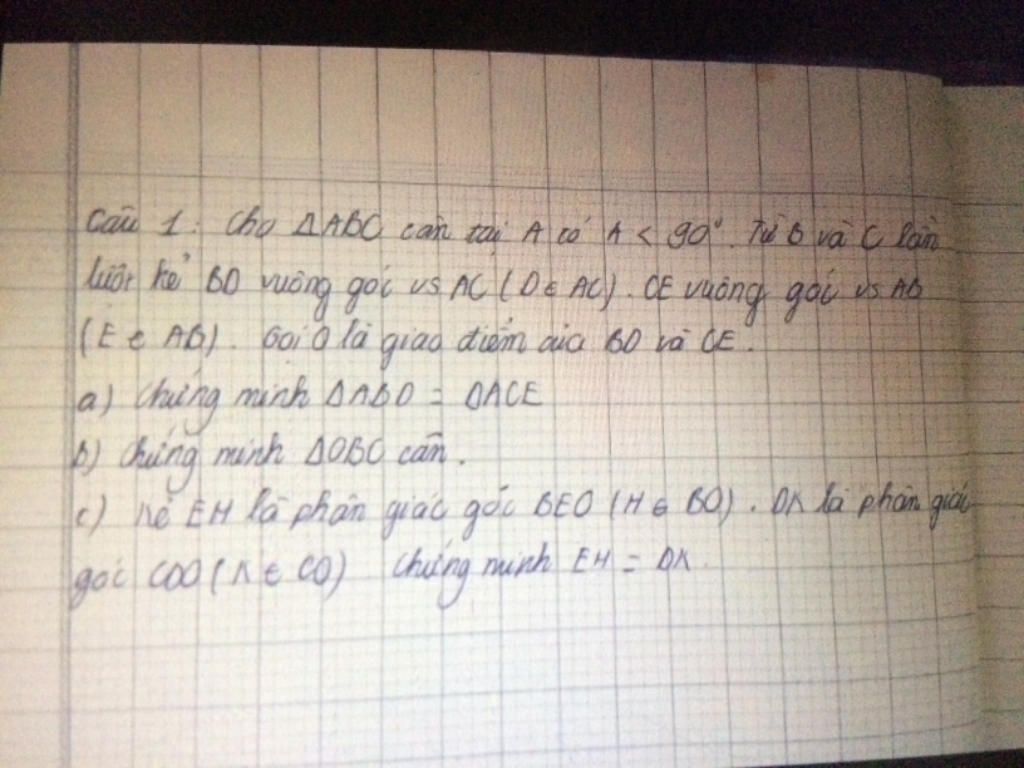 Câu 1: Cho ΔABC cân tại A có A < 90°. Từ B và C lần
lượt kẻ BD vuông góc vs AC (D ∈ AC). CE vuông góc vs AB
(E ∈ AB). Gọi O là giao điểm của BD và CE.
a) Chứng minh ΔABD = ΔACE
b) Chứng minh ΔOBC cân.
c) Kẻ EH là phân giác góc BEO (H ∈ BO). DK là phân giác
góc CDO (K ∈ CO) Chứng minh EH = DK.